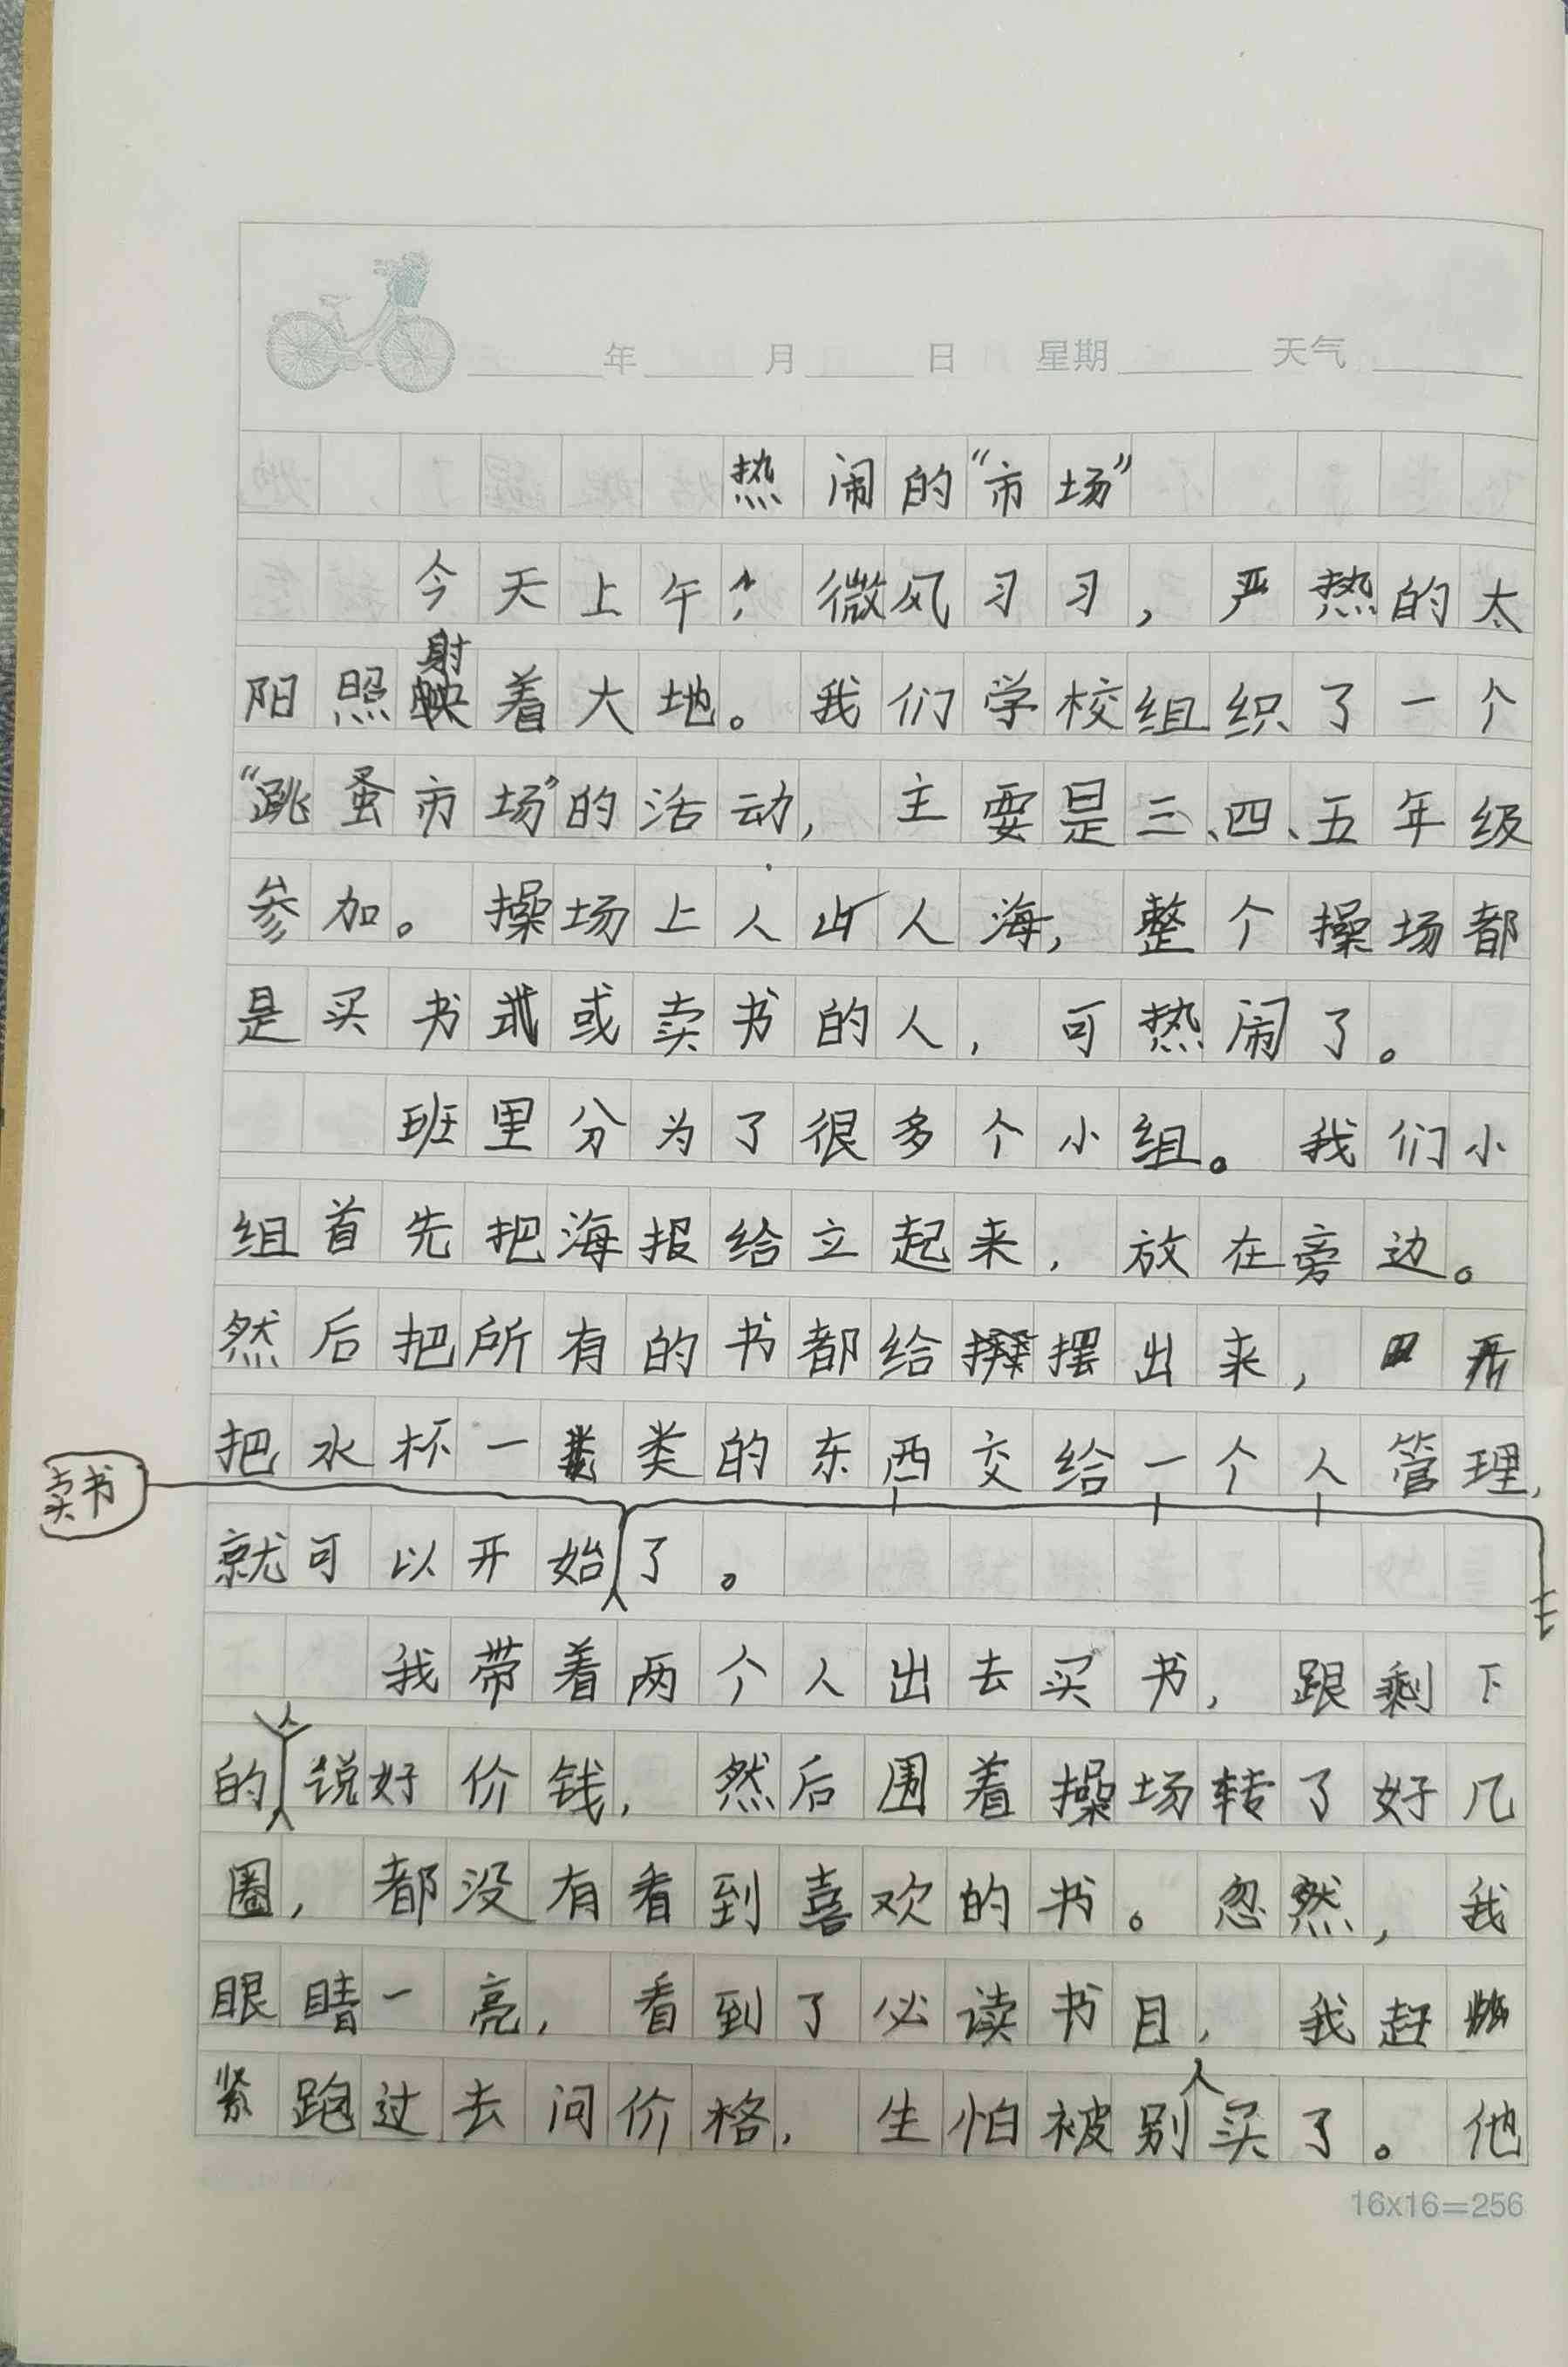 年 月 日 星期 天气
热闹的“市场”
今天上午，微风习习，严热的太
阳照射着大地。我们学校组织了一个
“跳蚤市场”的活动，主要是三、四、五年级
参加。操场上人山人海，整个操场都
是买书或卖书的人，可热闹了。
班里分为了很多个小组。我们小
组首先把海报给立起来，放在旁边。
然后把所有的书都给摆出来，
把水杯一类的东西交给一个人管理，
就可以开始卖书了。
我带着两个人出去买书，跟剩下
的人说好价钱，然后围着操场转了好几
圈，都没有看到喜欢的书。忽然，我
眼睛一亮，看到了必读书目，我赶
紧跑过去问价格，生怕被别人买了。他
16x16=256